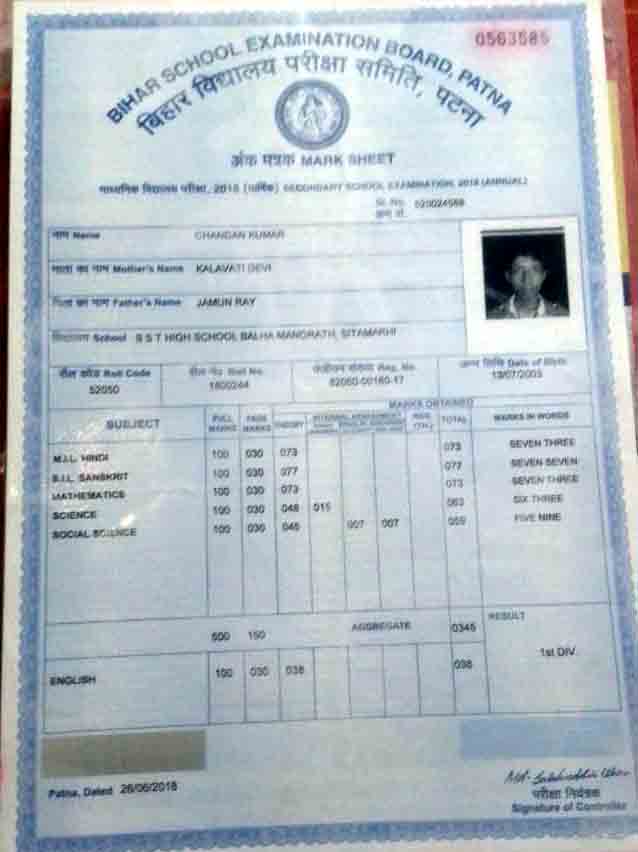 0563585
BIHAR SCHOOL EXAMINATION BOARD, PATNA
बिहार विद्यालय परीक्षा समिति, पटना
अंक पत्रक MARK SHEET
माध्यमिक विद्यालय परीक्षा, 2018 (वार्षिक) SECONDARY SCHOOL EXAMINATION, 2018 (ANNUAL)
Sl. No. 520024568
क्रम सं.
नाम Name CHANDAN KUMAR
माता का नाम Mother's Name KALAVATI DEVI
पिता का नाम Father's Name JAMUN RAY
विद्यालय School S S T HIGH SCHOOL BALHA MANORATH, SITAMARHI
रौल कोड Roll Code रौल नं० Roll No. पंजीयन संख्या Reg. No. जन्म तिथि Date of Birth
52050 1800244 52050-00160-17 13/07/2003
MARKS OBTAINED
SUBJECT FULL MARKS PASS MARKS THEORY INTERNAL ASSESSMENT TOTAL MARKS IN WORDS
M.I.L. HINDI 100 030 073 073 SEVEN THREE
S.I.L. SANSKRIT 100 030 077 077 SEVEN SEVEN
MATHEMATICS 100 030 073 073 SEVEN THREE
SCIENCE 100 030 048 015 063 SIX THREE
SOCIAL SCIENCE 100 030 045 007 007 059 FIVE NINE
500 150 AGGREGATE 0345 RESULT
1st DIV.
ENGLISH 100 030 038 038
Patna, Dated 26/06/2018
परीक्षा नियंत्रक
Signature of Controller